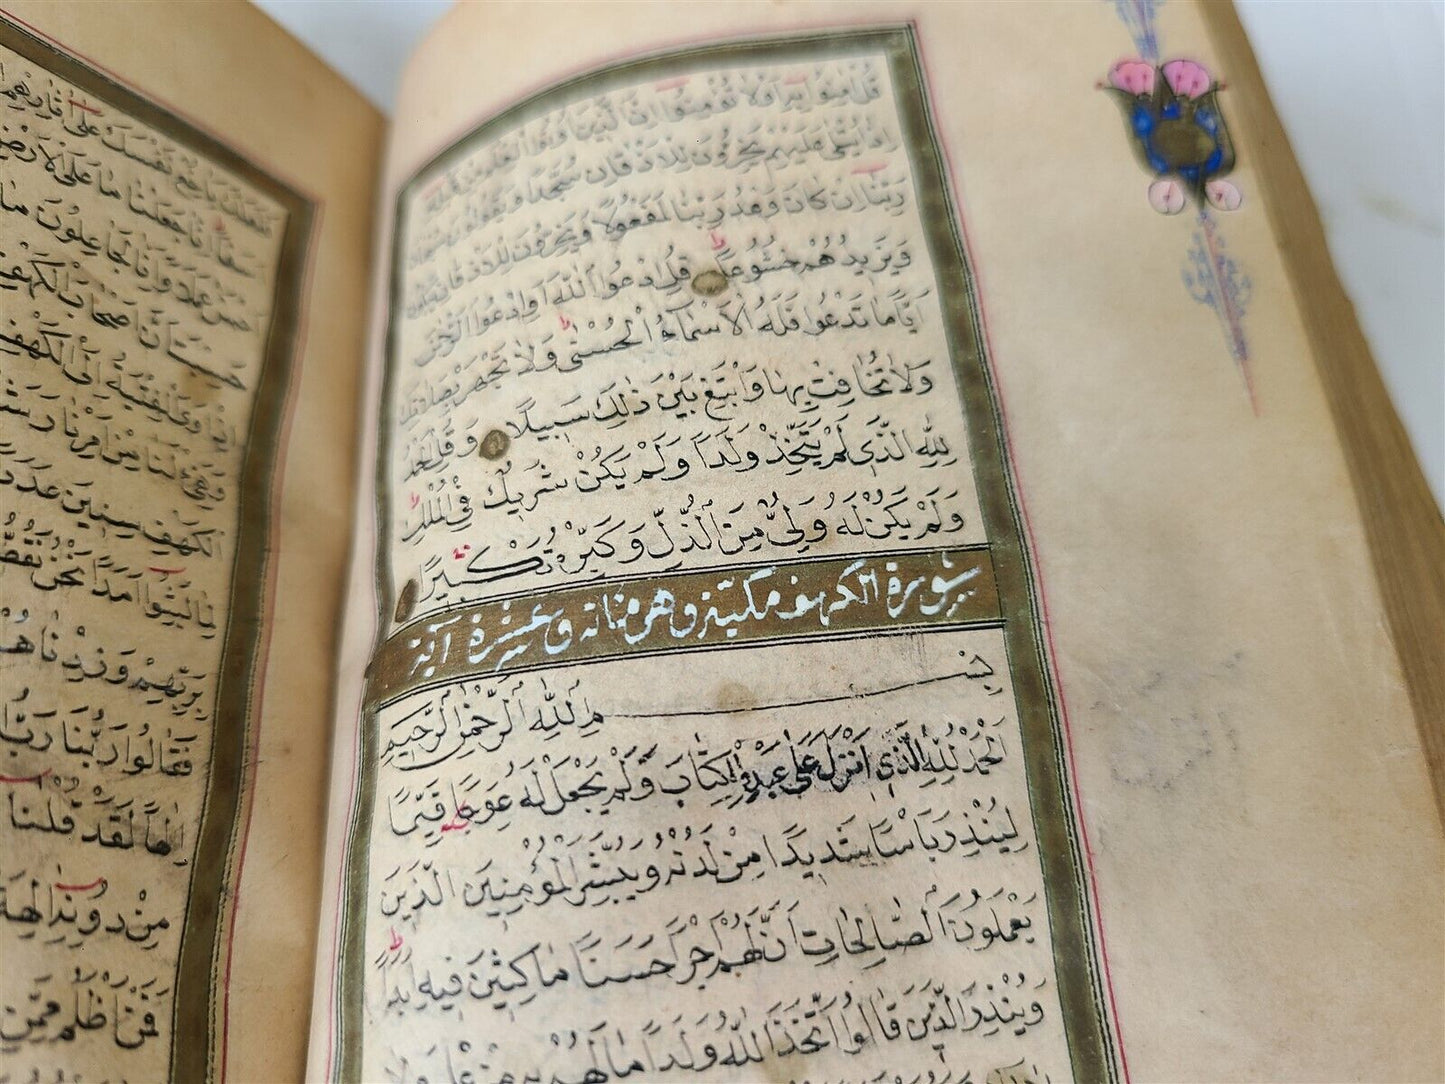 قُلْ اٰمِنُوا بِهِ اَوْلَا تُؤْمِنُوا اِنَّ الَّذِينَ اُوتُوا الْعِلْمَ مِنْ قَبْلِهِ
اِذَا يُتْلٰى عَلَيْهِمْ يَخِرُّونَ لِلْاَذْقَانِ سُجَّدًا وَيَقُولُونَ سُبْحَانَ
رَبِّنَا اِنْ كَانَ وَعْدُ رَبِّنَا لَمَفْعُولًا وَيَخِرُّونَ لِلْاَذْقَانِ يَبْكُونَ
وَيَزِيدُهُمْ خُشُوعًا قُلِ ادْعُوا اللّٰهَ اَوِ ادْعُوا الرَّحْمٰنَ
اَيًّا مَا تَدْعُوا فَلَهُ الْاَسْمَاءُ الْحُسْنٰى وَلَا تَجْهَرْ بِصَلَاتِكَ
وَلَا تُخَافِتْ بِهَا وَابْتَغِ بَيْنَ ذٰلِكَ سَبِيلًا وَقُلِ الْحَمْدُ
لِلّٰهِ الَّذِى لَمْ يَتَّخِذْ وَلَدًا وَلَمْ يَكُنْ لَهُ شَرِيكٌ فِى الْمُلْكِ
وَلَمْ يَكُنْ لَهُ وَلِىٌّ مِنَ الذُّلِّ وَكَبِّرْهُ تَكْبِيرًا
سورة الكهف مكية وهى مائة وعشرة آية
بِسْمِ اللّٰهِ الرَّحْمٰنِ الرَّحِيمِ
اَلْحَمْدُ لِلّٰهِ الَّذِى اَنْزَلَ عَلٰى عَبْدِهِ الْكِتَابَ وَلَمْ يَجْعَلْ لَهُ عِوَجًا قَيِّمًا
لِيُنْذِرَ بَاْسًا شَدِيدًا مِنْ لَدُنْهُ وَيُبَشِّرَ الْمُؤْمِنِينَ الَّذِينَ
يَعْمَلُونَ الصَّالِحَاتِ اَنَّ لَهُمْ اَجْرًا حَسَنًا مَاكِثِينَ فِيهِ اَبَدًا
وَيُنْذِرَ الَّذِينَ قَالُوا اتَّخَذَ اللّٰهُ وَلَدًا مَا لَهُمْ بِهِ مِنْ عِلْمٍ وَلَا
فَلَعَلَّكَ بَاخِعٌ نَفْسَكَ عَلٰى اٰثَارِهِمْ
اِنَّا جَعَلْنَا مَا عَلَى الْاَرْضِ
عَمَلًا وَاِنَّا لَجَاعِلُونَ مَا
حَسِبْتَ اَنَّ اَصْحَابَ الْكَهْفِ
الْفِتْيَةُ اِلَى الْكَهْفِ
لَنَا مِنْ اَمْرِنَا رَشَدًا
الْكَهْفِ سِنِينَ عَدَدًا
لَبِثُوا اَمَدًا نَحْنُ نَقُصُّ
بِرَبِّهِمْ وَزِدْنَاهُمْ
فَقَالُوا رَبُّنَا رَبُّ
اِلٰهًا لَقَدْ قُلْنَا
مِنْ دُونِهِ اٰلِهَةً
فَمَنْ اَظْلَمُ مِمَّنِ